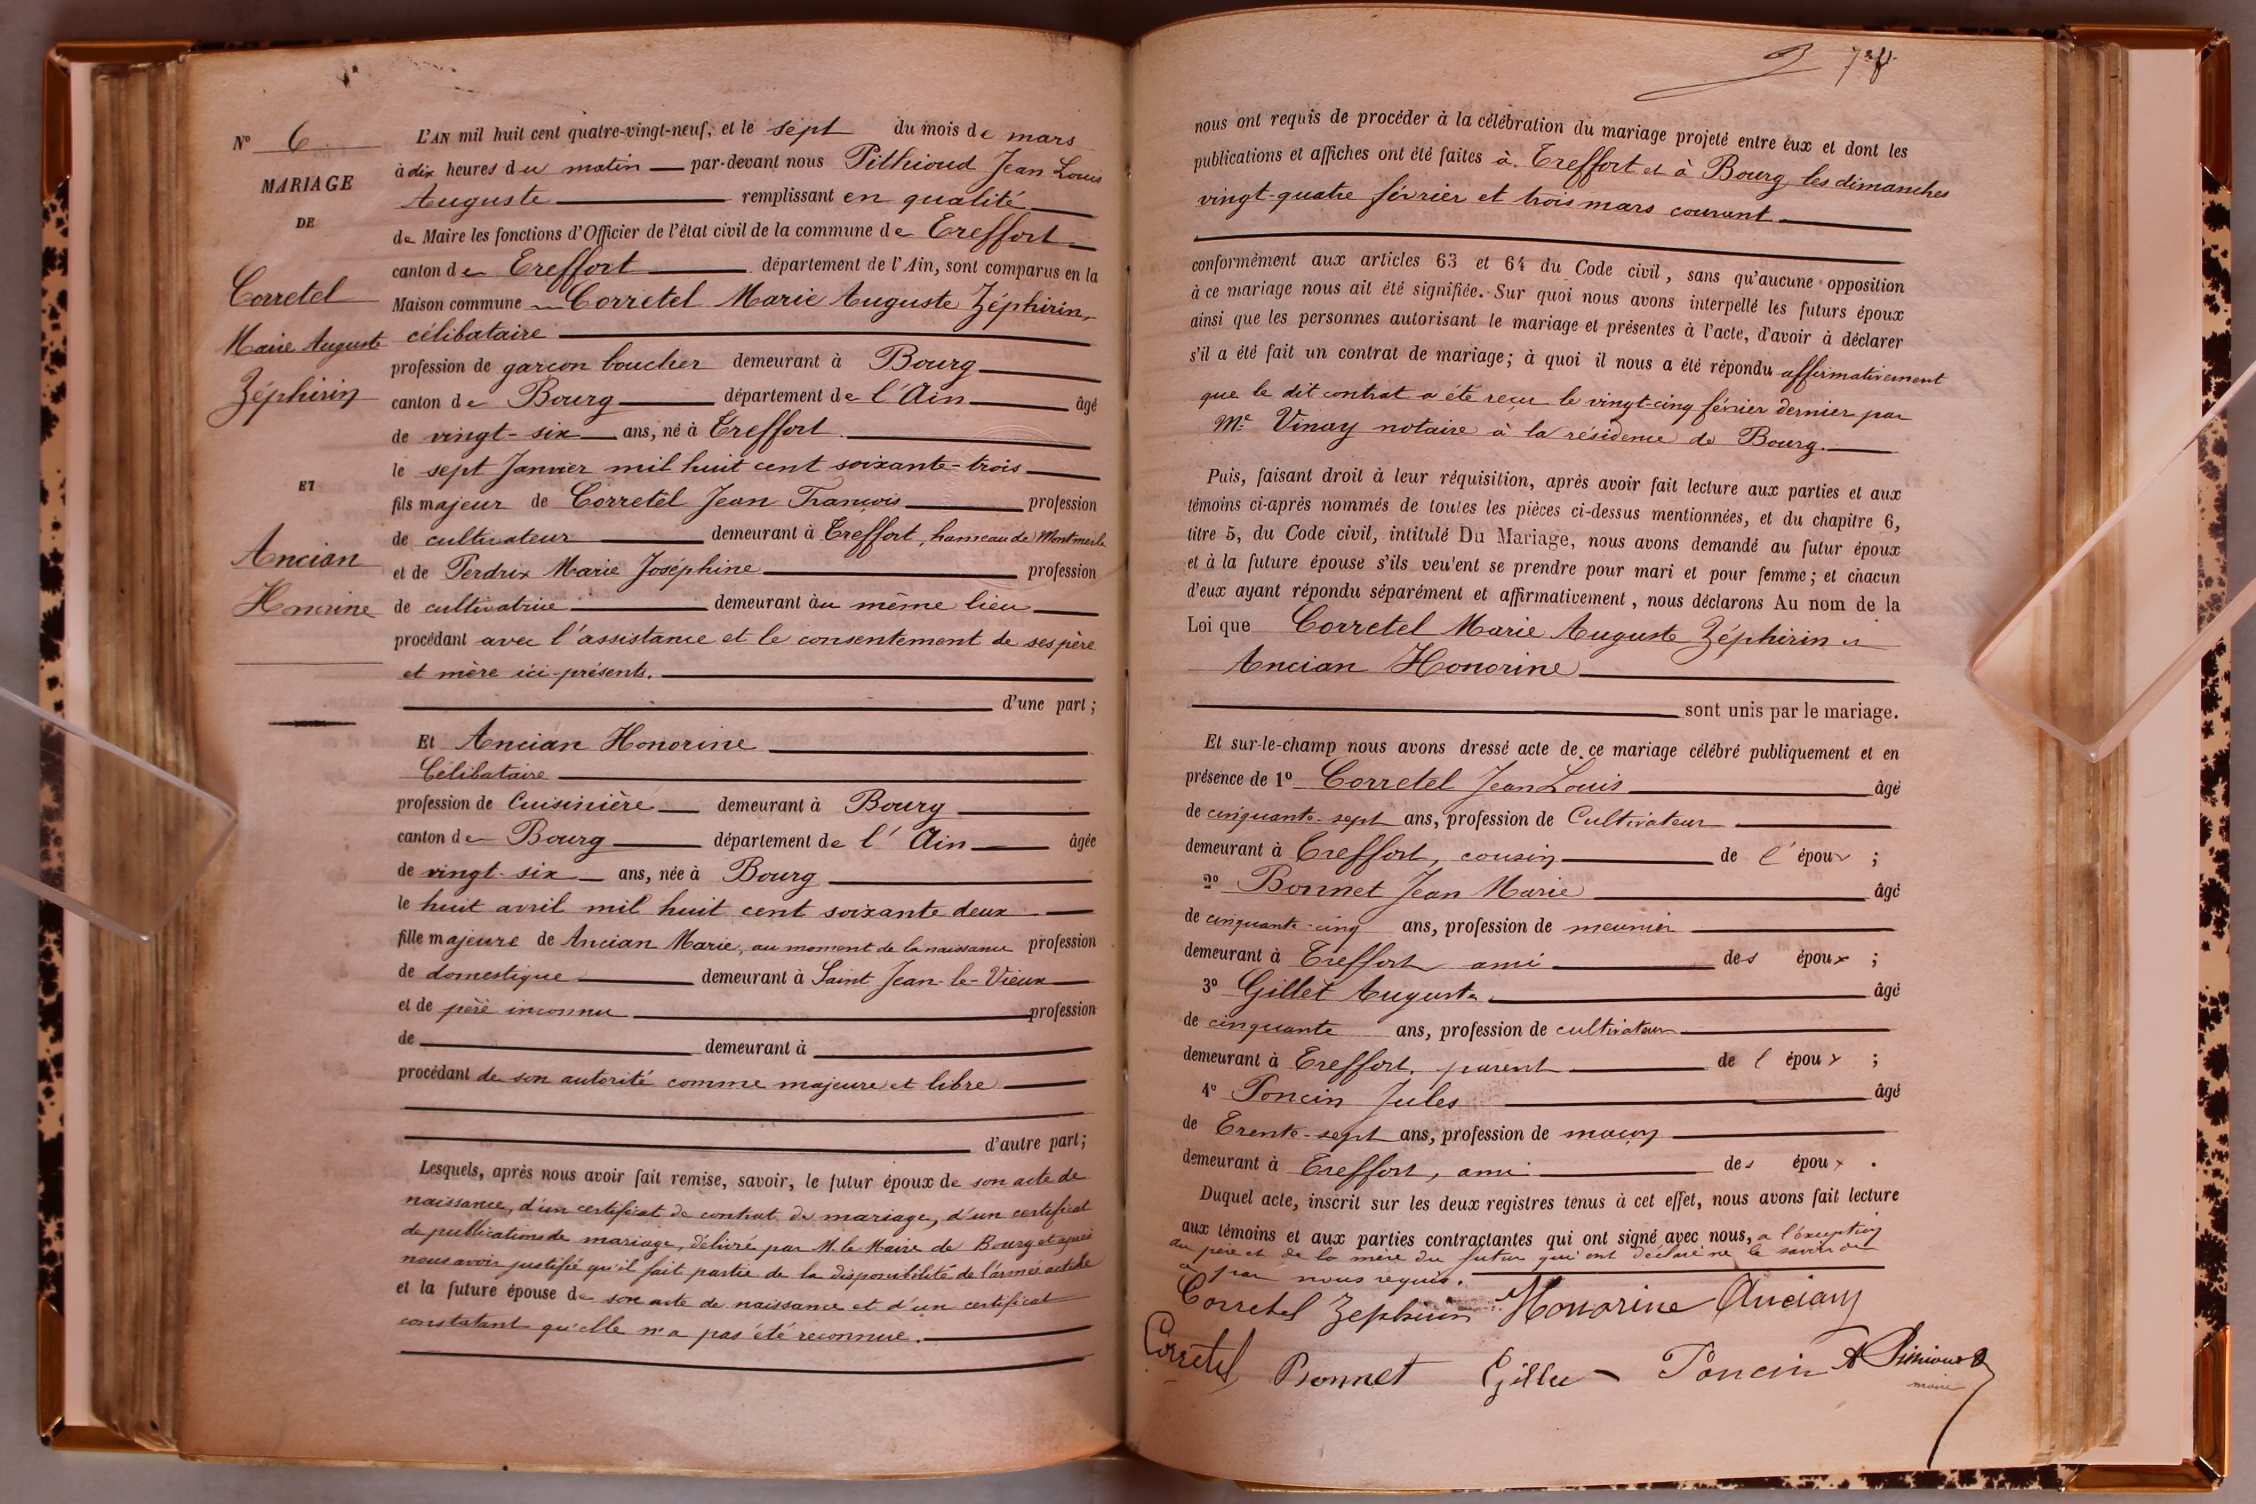 Nº 6
MARIAGE
DE
Corretel
Marie Auguste
Zéphirin
ET
Ancian
Honorine
L'AN mil huit cent quatre-vingt-neuf, et le sept du mois de mars
à dix heures du matin par-devant nous Pithioud Jean Louis
Auguste remplissant en qualité
de Maire les fonctions d'Officier de l'état civil de la commune de Treffort
canton de Treffort département de l'Ain, sont comparus en la
Maison commune Corretel Marie Auguste Zéphirin,
célibataire
profession de garçon boucher demeurant à Bourg
canton de Bourg département de l'Ain âgé
de vingt-six ans, né à Treffort
le sept Janvier mil huit cent soixante-trois
fils majeur de Corretel Jean François profession
de cultivateur demeurant à Treffort, hameau de Montmerle
et de Perdrix Marie Joséphine profession
de cultivatrice demeurant àu même lieu
procédant avec l'assistance et le consentement de ses père
et mère ici présents.
d'une part ;
Et Ancian Honorine
Célibataire
profession de Cuisinière demeurant à Bourg
canton de Bourg département de l'Ain âgée
de vingt-six ans, née à Bourg
le huit avril mil huit cent soixante deux
fille majeure de Ancian Marie, au moment de la naissance profession
de domestique demeurant à Saint Jean-le-Vieux
et de père inconnu profession
de demeurant à
procédant de son autorité comme majeure et libre
d'autre part;
Lesquels, après nous avoir fait remise, savoir, le futur époux de son acte de
naissance, d'un certificat de contrat de mariage, d'un certificat
de publications de mariage, délivré par M. le Maire de Bourg et après
nous avoir justifié qu'il fait partie de la disponibilité de l'armée active
et la future épouse de son acte de naissance et d'un certificat
constatant qu'elle n'a pas été reconnue.
nous ont requis de procéder à la célébration du mariage projeté entre eux et dont les
publications et affiches ont été faites à Treffort et à Bourg les dimanches
vingt-quatre février et trois mars courant
conformément aux articles 63 et 64 du Code civil, sans qu'aucune opposition
à ce mariage nous ait été signifiée. Sur quoi nous avons interpellé les futurs époux
ainsi que les personnes autorisant le mariage et présentes à l'acte, d'avoir à déclarer
s'il a été fait un contrat de mariage; à quoi il nous a été répondu affirmativement
que le dit contrat a été reçu le vingt-cinq février dernier par
Me Vinay notaire à la résidence de Bourg.
Puis, faisant droit à leur réquisition, après avoir fait lecture aux parties et aux
témoins ci-après nommés de toutes les pièces ci-dessus mentionnées, et du chapitre 6,
titre 5, du Code civil, intitulé Du Mariage, nous avons demandé au futur époux
et à la future épouse s'ils veulent se prendre pour mari et pour femme; et chacun
d'eux ayant répondu séparément et affirmativement, nous déclarons Au nom de la
Loi que Corretel Marie Auguste Zéphirin et
Ancian Honorine
sont unis par le mariage.
Et sur-le-champ nous avons dressé acte de ce mariage célébré publiquement et en
présence de 1º Corretel Jean Louis âgé
de cinquante-sept ans, profession de Cultivateur
demeurant à Treffort, cousin de l'époux ;
2º Bonnet Jean Marie âgé
de cinquante-cinq ans, profession de meunier
demeurant à Treffort ami des époux ;
3º Gillet Auguste âgé
de cinquante ans, profession de cultivateur
demeurant à Treffort, parent de l époux ;
4º Poncin Jules âgé
de Trente-sept ans, profession de maçon
demeurant à Treffort, ami des époux .
Duquel acte, inscrit sur les deux registres tenus à cet effet, nous avons fait lecture
aux témoins et aux parties contractantes qui ont signé avec nous, a l'éxeption
du père et de la mère du futur qui ont déclaré ne le savoir de
ce par nous requis.
Corretel Zephirin Honorine Ancian
Corretel Bonnet Gillet Poncin A Pithioud
maire